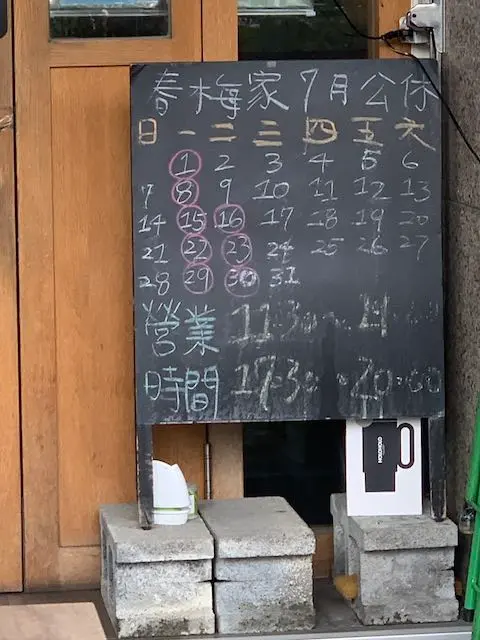 春梅家7月公休
日 一 二 三 四 五 六
1 2 3 4 5 6
7 8 9 10 11 12 13
14 15 16 17 18 19 20
21 22 23 24 25 26 27
28 29 30 31
營業 11:30~14:00
時間 17:30~20:00